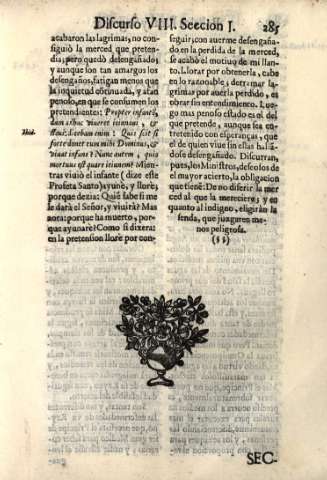 Discurso VIII. Seccion I. 285
acabaron las lagrimas, no consiguiò la merced que pretendia; pero quedò desengañado;
y aunque son tan amargos los
desengaños, fatigan menos que
la inquietud obstinada, y afan
penoso, en que se consumen los
pretendientes: Propter infantẽ,
dum adhuc viveret ieiunavi, &
flevi: dicebam enim: Quis scit si
forte donet eum mihi Dominus, &
vivat infans? Nunc autem, quia
mortuus est quare ieiunem? Mientras viviò el infante (dize este
Profeta Santo) ayunè, y llorè;
porque dezia: Quiẽ sabe si me
le darà el Señor, y vivirà? Mas
aora: porque ha muerto, porque ayunarè? Como si dixera:
en la pretension llorè por con-
Ibid.
seguir; con averme desengañado en la perdida de la merced,
se acabò el motivo de mi llanto. Llorar por obtenerla, cabe
en lo razonable; derramar lagrimas por averla perdido, es
obrar sin entendimiento. Luego mas penoso estado es el del
que pretende, aunque sea entretenido con esperanças, que
el de quien vive sin ellas hallandose desengañado. Discurran,
pues, los Ministros, deseosos del
mayor acierto, la obligacion
que tienē: De no diferir la merced al que la mereciere; y en
quanto al indigno, eligirán la
senda, que juzguren menos peligrosa.
(§§)
SEC-